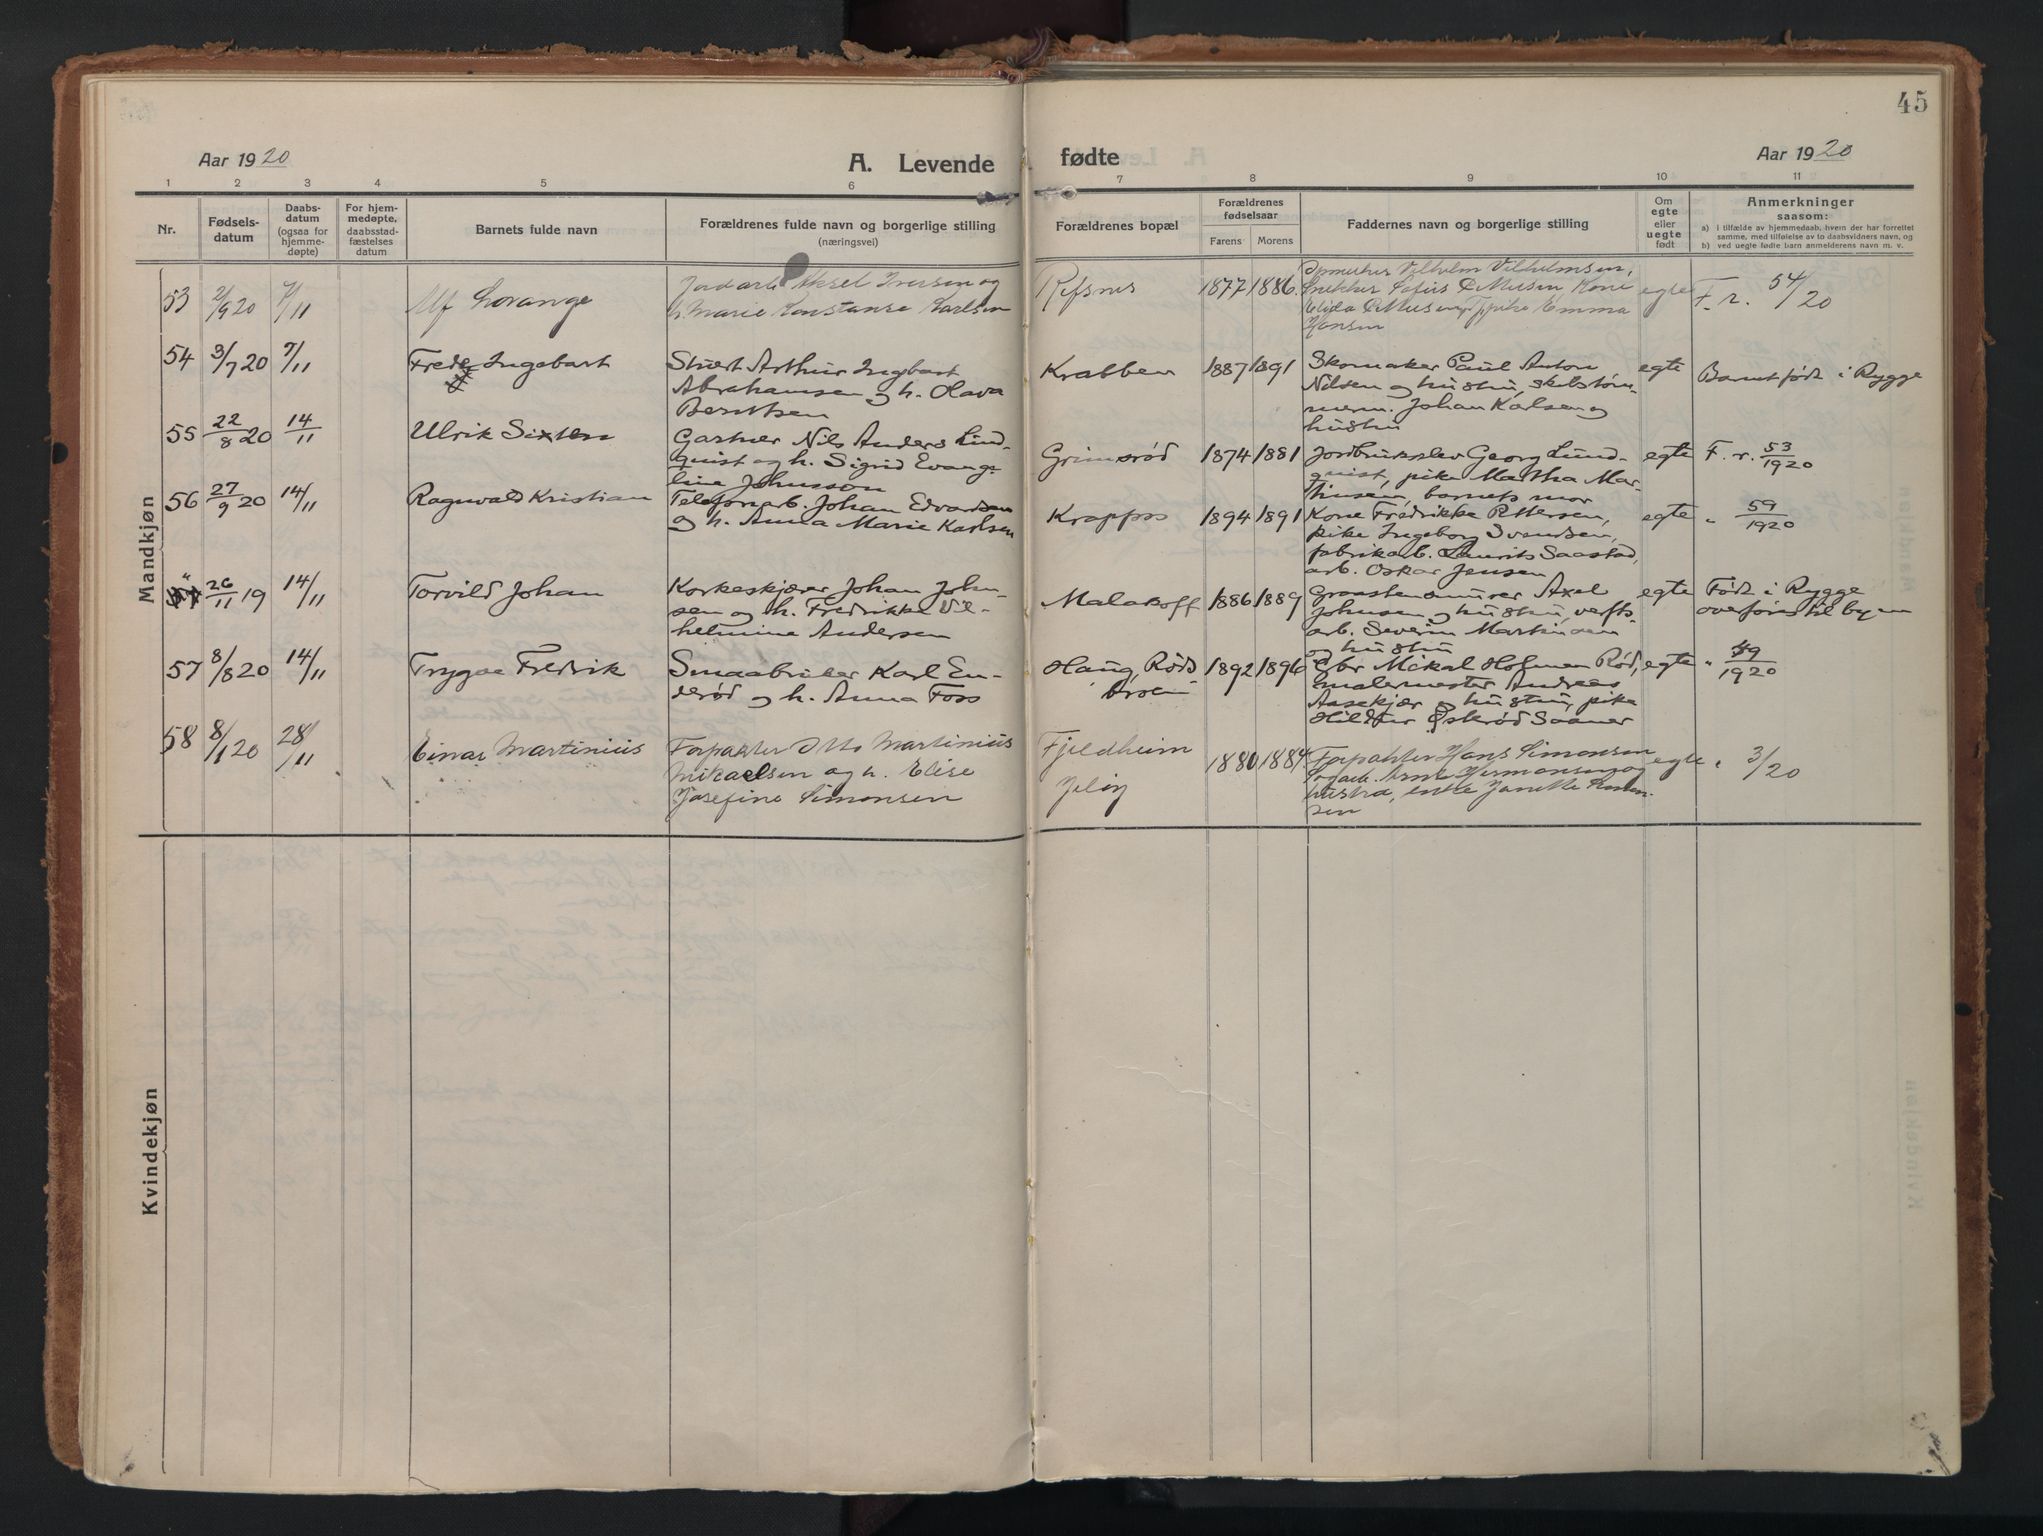 45
Aar 1920
A. Levende fødte
Aar 1920
1 2 3 4 5 6 7 8 9 10 11
Nr.
Fødsels-
datum
Daabs-
datum
(ogsaa for
hjemme-
døpte)
For hjem-
medøpte,
daabsstad-
fæstelses
datum
Barnets fulde navn
Forældrenes fulde navn og borgerlige stilling
(næringsvei)
Forældrenes bopæl
Forældrenes
fødselsaar
Farens Morens
Faddernes navn og borgerlige stilling
Om
egte
eller
uegte
født
Anmerkninger
saasom:
a) i tilfælde av hjemmedaab, hvem der har forrettet
samme, med tilføielse av to daabsvidners navn, og
b) ved uegte fødte barn anmelderens navn m. v.
Mandkjøn
53 2/9 20 7/11 Ulf Lorange
Jordarb. Aksel Iversen og
h. Marie Konstanse Karlsen
Refsnes 1877 1886
Vilhelm Vilhelmsen,
Snekker Kone
Emma
Hansen
egte F. r. 54/20
54 3/7 20 7/11 Ingebart
Arthur Ingebart
Abrahamsen og h. Olava
Berntsen
Krabben 1887 1891
Skomaker Paul Anton
Nilsen og hustru, skibstøm-
merm. Johan Karlsen og
hustru
egte Barnet født i Rygge
55 22/8 20 14/11 Ulrik Sixten
Gartner Nils Anders Lind-
quist og h. Sigrid Evange-
line Johnsson
Grimsrød 1874 1881
Jordbrukselev Georg Lund-
quist, pike Martha Mar-
thinsen, barnets mor
egte F. r. 53/1920
56 27/9 20 14/11 Ragnvald Kristian
Telefonarb. Johan Edvardsen
og h. Anna Marie Karlsen
Krapfos 1894 1891
Kone Fredrikke Pettersen,
pike Ingeborg Svendsen,
fabrikarb. Laurits Saastad,
arb. Oskar Jensen
egte " 59/1920
" 26/11 19 14/11 Torvild Johan
Korkeskjærer Johan John-
sen og h. Fredrikke Vil-
helmine Andersen
Malakoff 1886 1889
Axel
Johnsen og hustru, verfts-
arb. Severin Martinsen
og hustru
egte Født i Rygge
overføres til byen
57 8/8 20 14/11 Trygve Fredrik
Smaabruker Karl En-
derød og h. Anna Foss
Haug, Røds-
1892 1896
Gbr Mikal Holmen Rød,
malermester Andreas
Aasekjær og hustru, pike
Hildur Saaner
egte " 1920
58 8/1 20 28/11 Einar Martinius
Forpakter Otto Martinius
Mikaelsen og h. Elise
Josefine Simonsen
Fjeldheim
Jeløy
1880 1884
Forpakter Hans Simonsen
Hermansen og
hustru, enke Janette
sen
egte " 3/20
Kvindekjøn